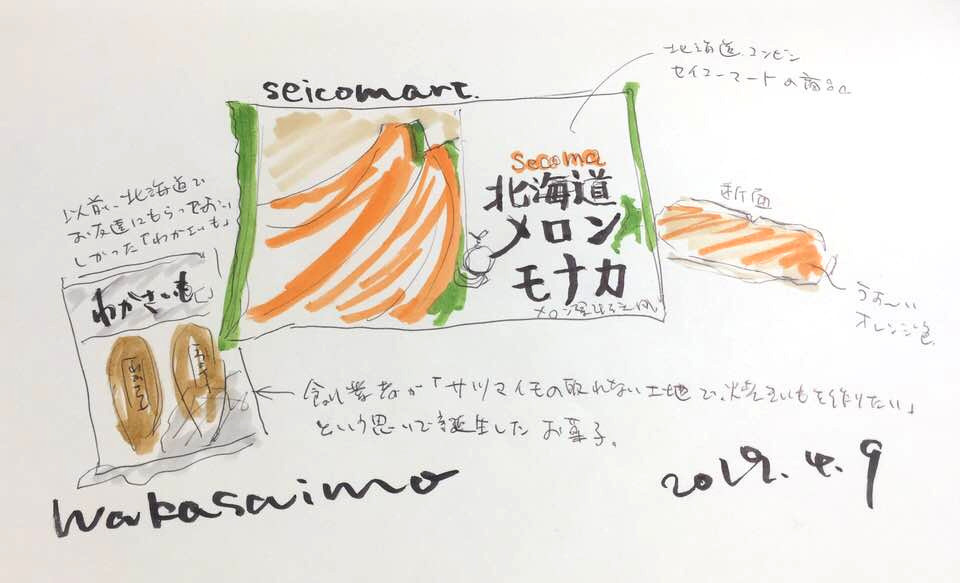 北海道コンビニ
セイコーマートの商品
seicomart.
Secoma
北海道
メロン
モナカ
断面
うすーい
オレンジ色
以前、北海道で
お友達にもらっておいし
しかった「わかさいも」
わかさいも
わかさいも
が「サツマイモの取れない土地で、焼きいもを作りたい」
という思いで誕生したお菓子。
wakasaimo
2019.4.9